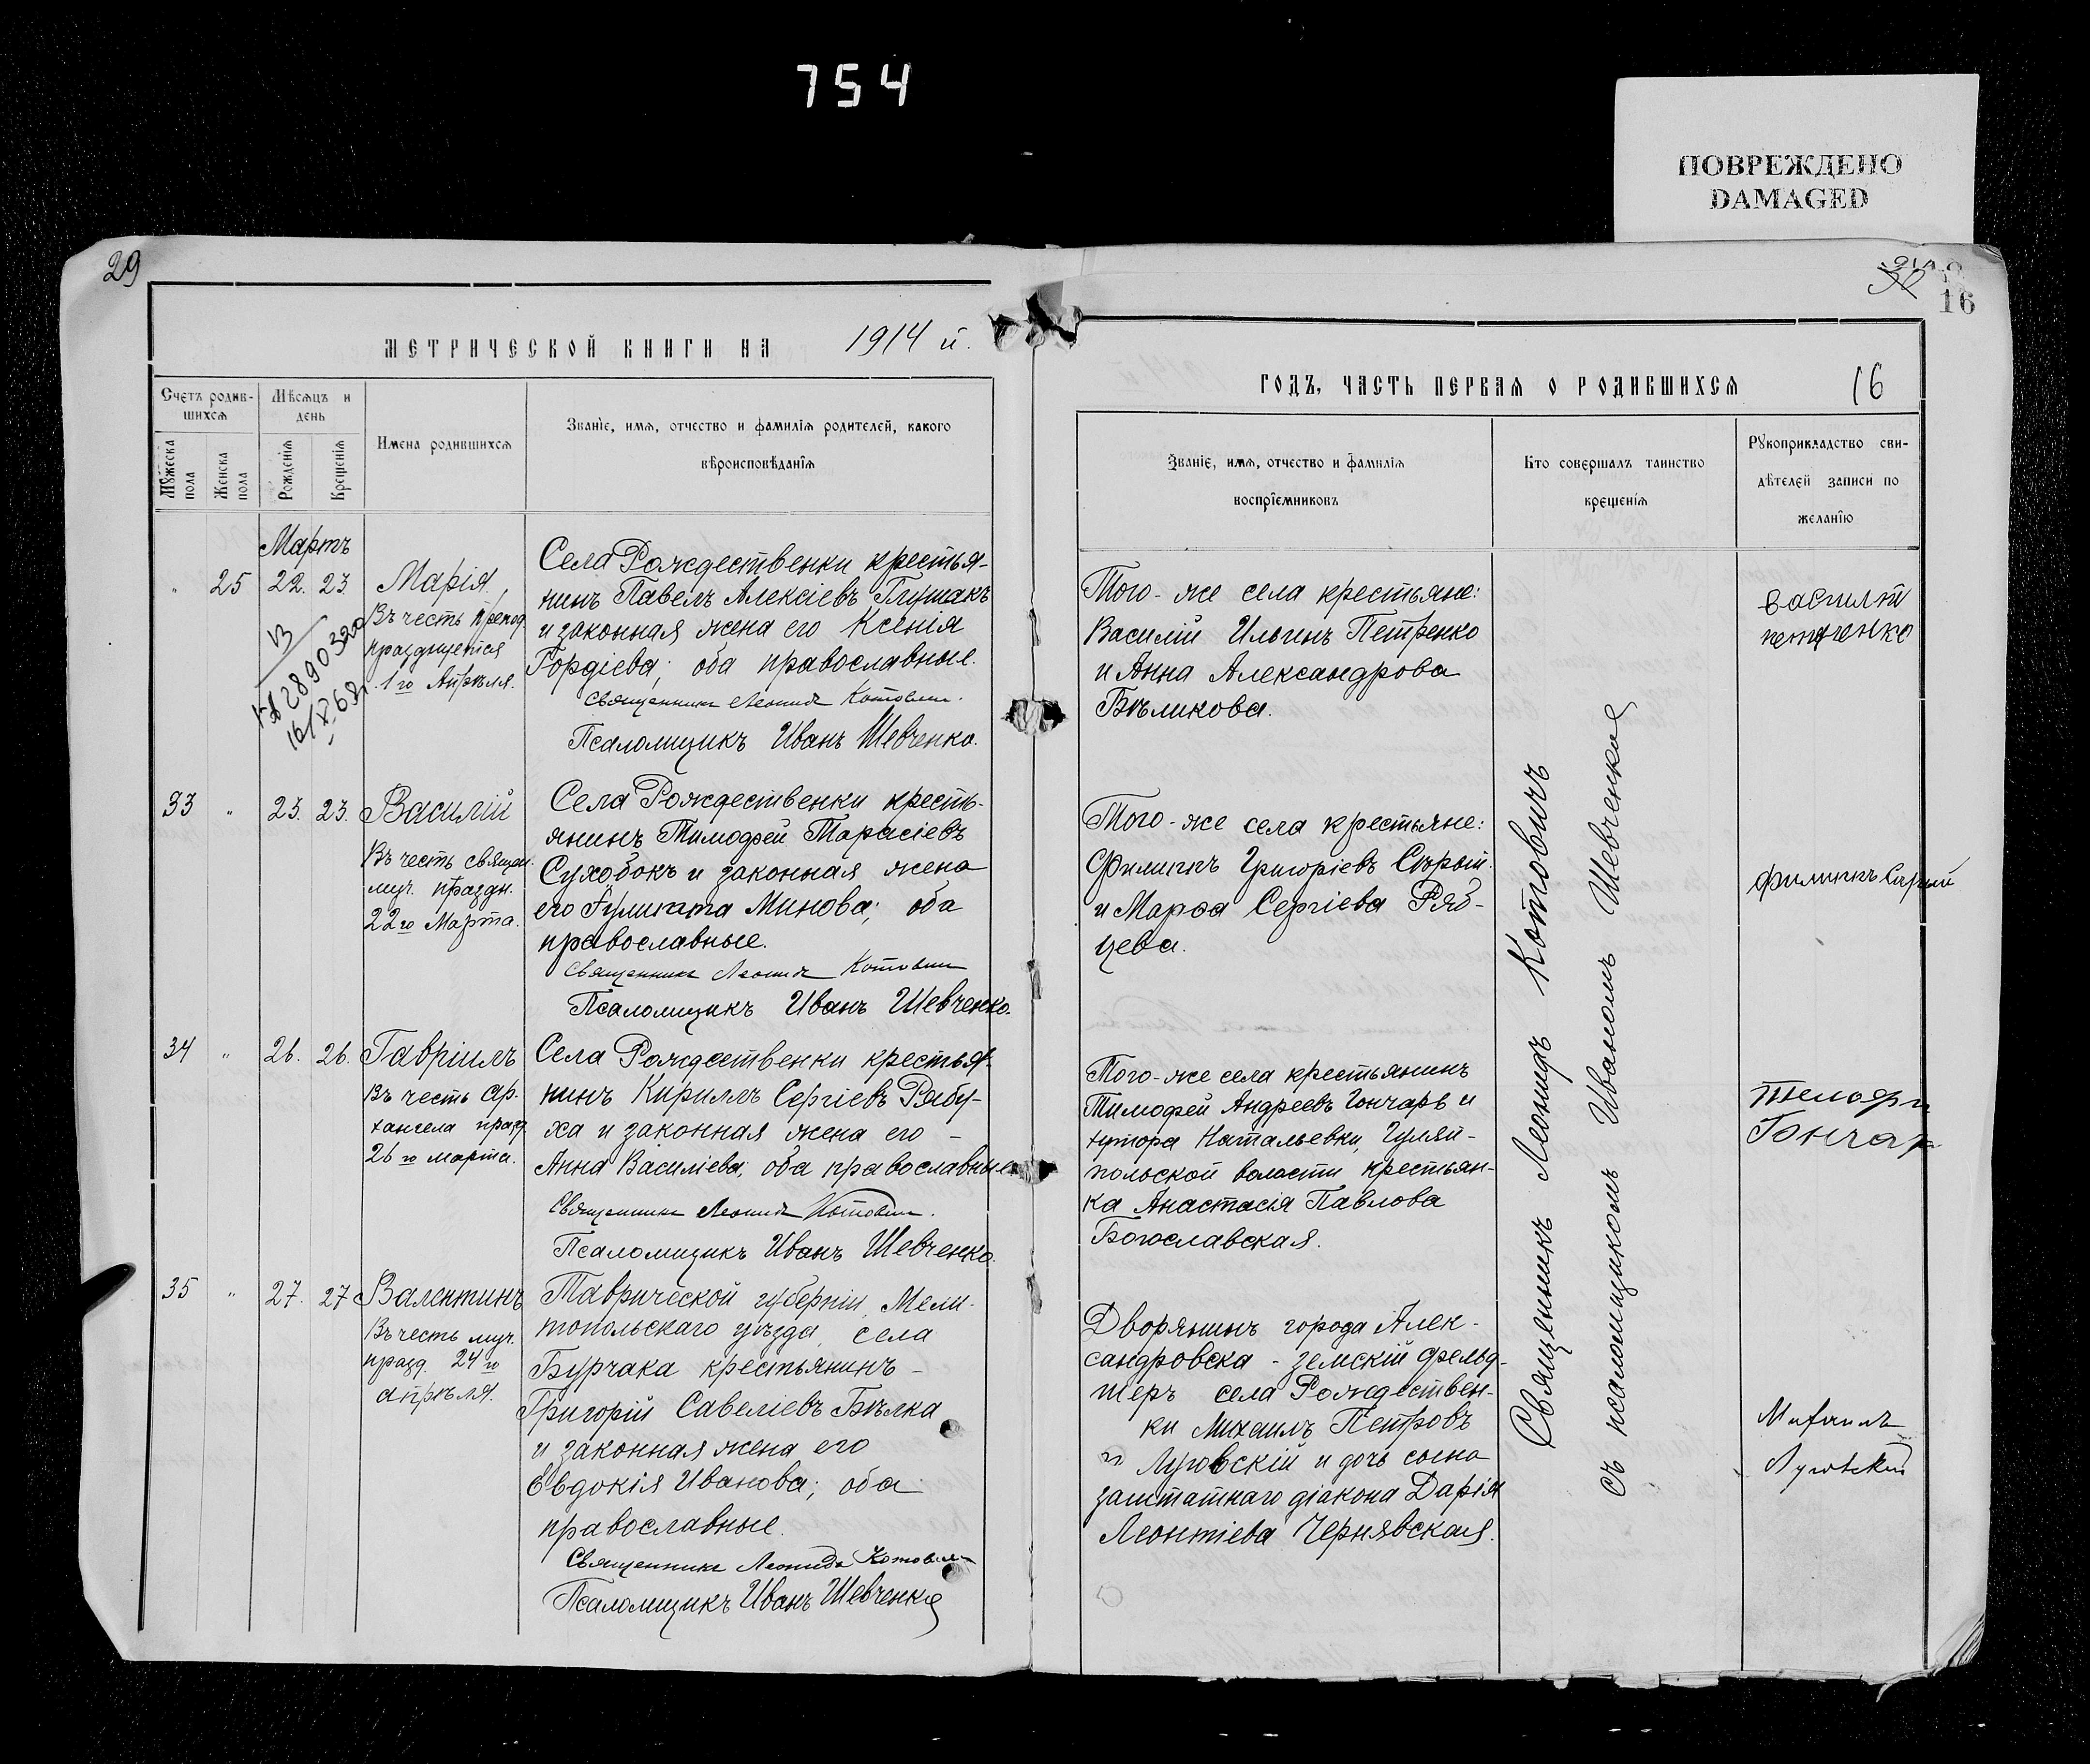 754
ПОВРЕЖДЕНО
DAMAGED
29
МЕТРИЧЕСКОЙ КНИГИ НА 1914 й.
Счетъ родив-
шихся
Мужеска пола
Женска пола
Мѣсяцъ и
день
Рожденія
Крещенія
Имена родившихся
Званіе, имя, отчество и фамилія родителей, какого
вѣроисповѣданія
Мартъ
" 25 22. 23.
Марія
Въ честь препод.
празднуется
1 го Апрѣля.
Села Рождественки крестья-
нинъ Павелъ Алексіевъ Глушакъ
и законная жена его Ксенія
Гордіева; оба православные.
Священникъ Леонидъ Котович.
Псаломщикъ Иванъ Шевченко.
33 " 23. 23.
Василій
Въ честь священ.
муч. праздн.
22 го Марта.
Села Рождественки кресть-
янинъ Тимофей Тарасіевъ
Сухобокъ и законная жена
его Гулитта Минова; оба
православные.
Священникъ Леонидъ Котович
Псаломщикъ Иванъ Шевченко.
34 " 26. 26.
Гавріилъ
Въ честь Ар-
хангела празд.
26 го марта.
Села Рождественки крестья-
нинъ Кириллъ Сергіевъ Рябу-
ха и законная жена его -
Анна Василіева; оба православные
Священникъ Леонидъ Котович.
Псаломщикъ Иванъ Шевченко.
35 " 27. 27
Валентинъ
Въ честь муч.
празд. 24 го
апрѣля.
Таврической губерніи, Мели-
топольскаго уѣзда, села
Бурчака крестьянинъ -
Григорій Савеліевъ Бѣлка
и законная жена его
Евдокія Иванова; оба
православные.
Священникъ Леонидъ Котович
Псаломщикъ Иванъ Шевченко
16
ГОДЪ, ЧАСТЬ ПЕРВАЯ О РОДИВШИХСЯ 16
Званіе, имя, отчество и фамилія
воспріемниковъ
Кто совершалъ таинство
крещенія
Рукоприкладство сви-
дѣтелей записи по
желанію
Того-же села крестьяне:
Василій Ильинъ Петренко
и Анна Александрова
Бѣликова.
Того-же села крестьяне:
Филиппъ Григоріевъ Сѣрый
и Марфа Сергіева Ряб-
цева.
Того-же села крестьянинъ
Тимофей Андреевъ Гончаръ и
хутора Натальевки, Гуляй-
польской волости крестьян-
ка Анастасія Павлова
Богославская.
Дворянинъ города Алек-
сандровска - земскій фельд-
шеръ села Рождествен-
ки Михаилъ Петровъ
Луговскій и дочь сына
заштатнаго діакона Дарія
Леонтіева Чернявская.
Священникъ Леонидъ Котовичъ
съ псаломщикомъ Иваномъ Шевченко
петренко
Филиппъ Сарый
Гончар
Луговской